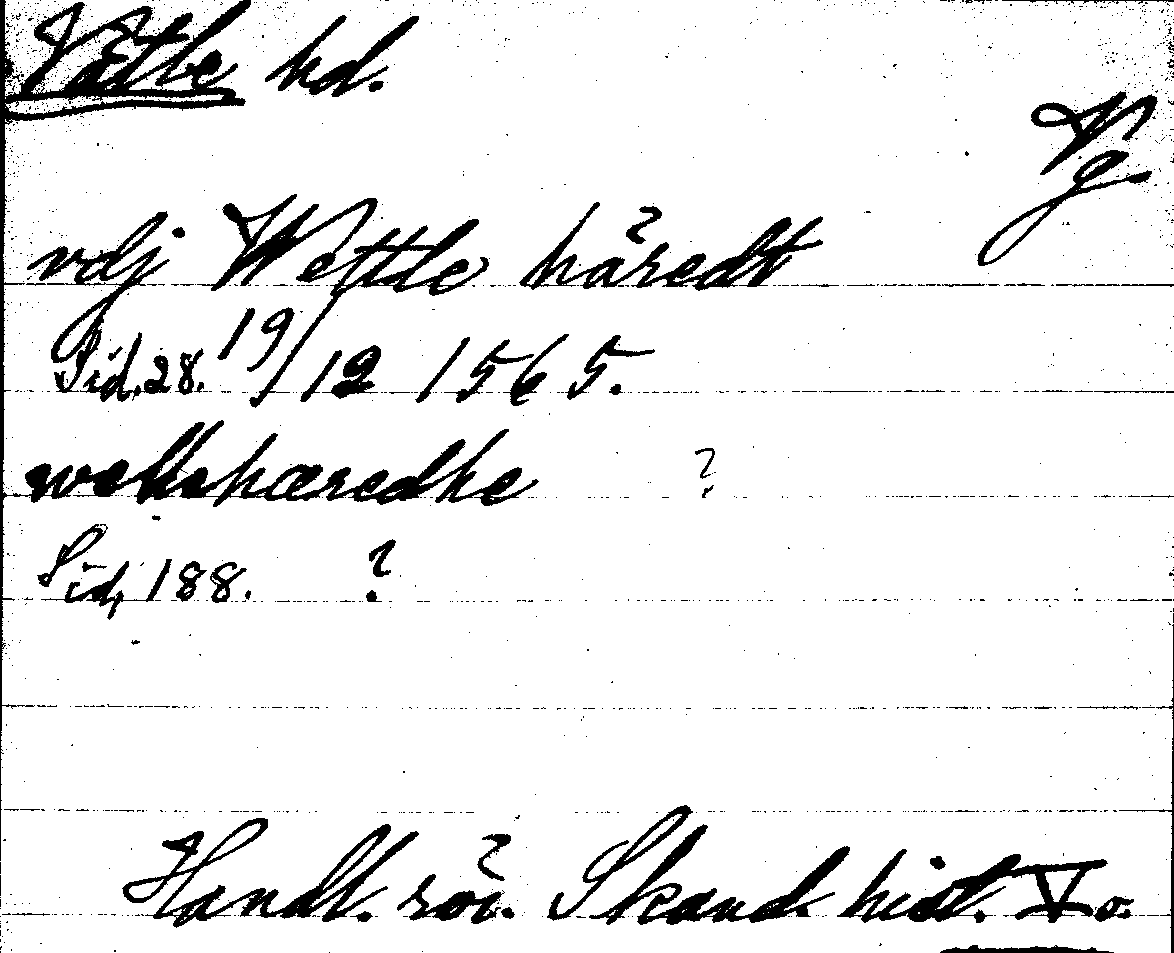 Vättle hd.
Vg
vdj Wettle håredt
Sid. 28. 19/12 1565.
wetlehæredhe ?
Sid, 188. ?
Handl. rör. Skand. hist. V o.